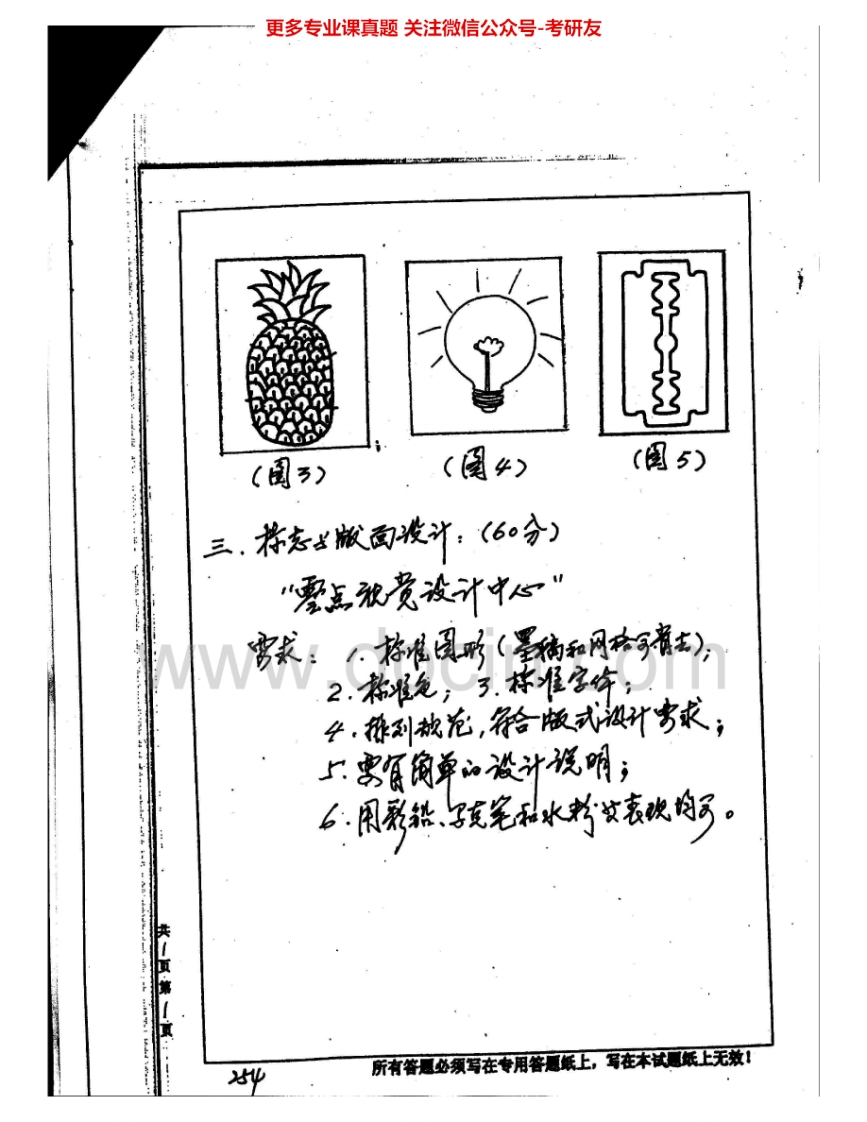 更多专业课真题 关注微信公众号-考研友
(图3) (图4) (图5)
三.标志与版面设计:(60分)
"零点视觉设计中心"
要求: 1.标准图形(墨稿和网格可省去);
2.标准色; 3.标准字体;
4.排列规范,符合版式设计要求;
5.要有简单的设计说明;
6.用彩铅、马克笔和水粉等表现均可。
www.
共1页第1页
所有答题必须写在专用答题纸上,写在本试题纸上无效!
254